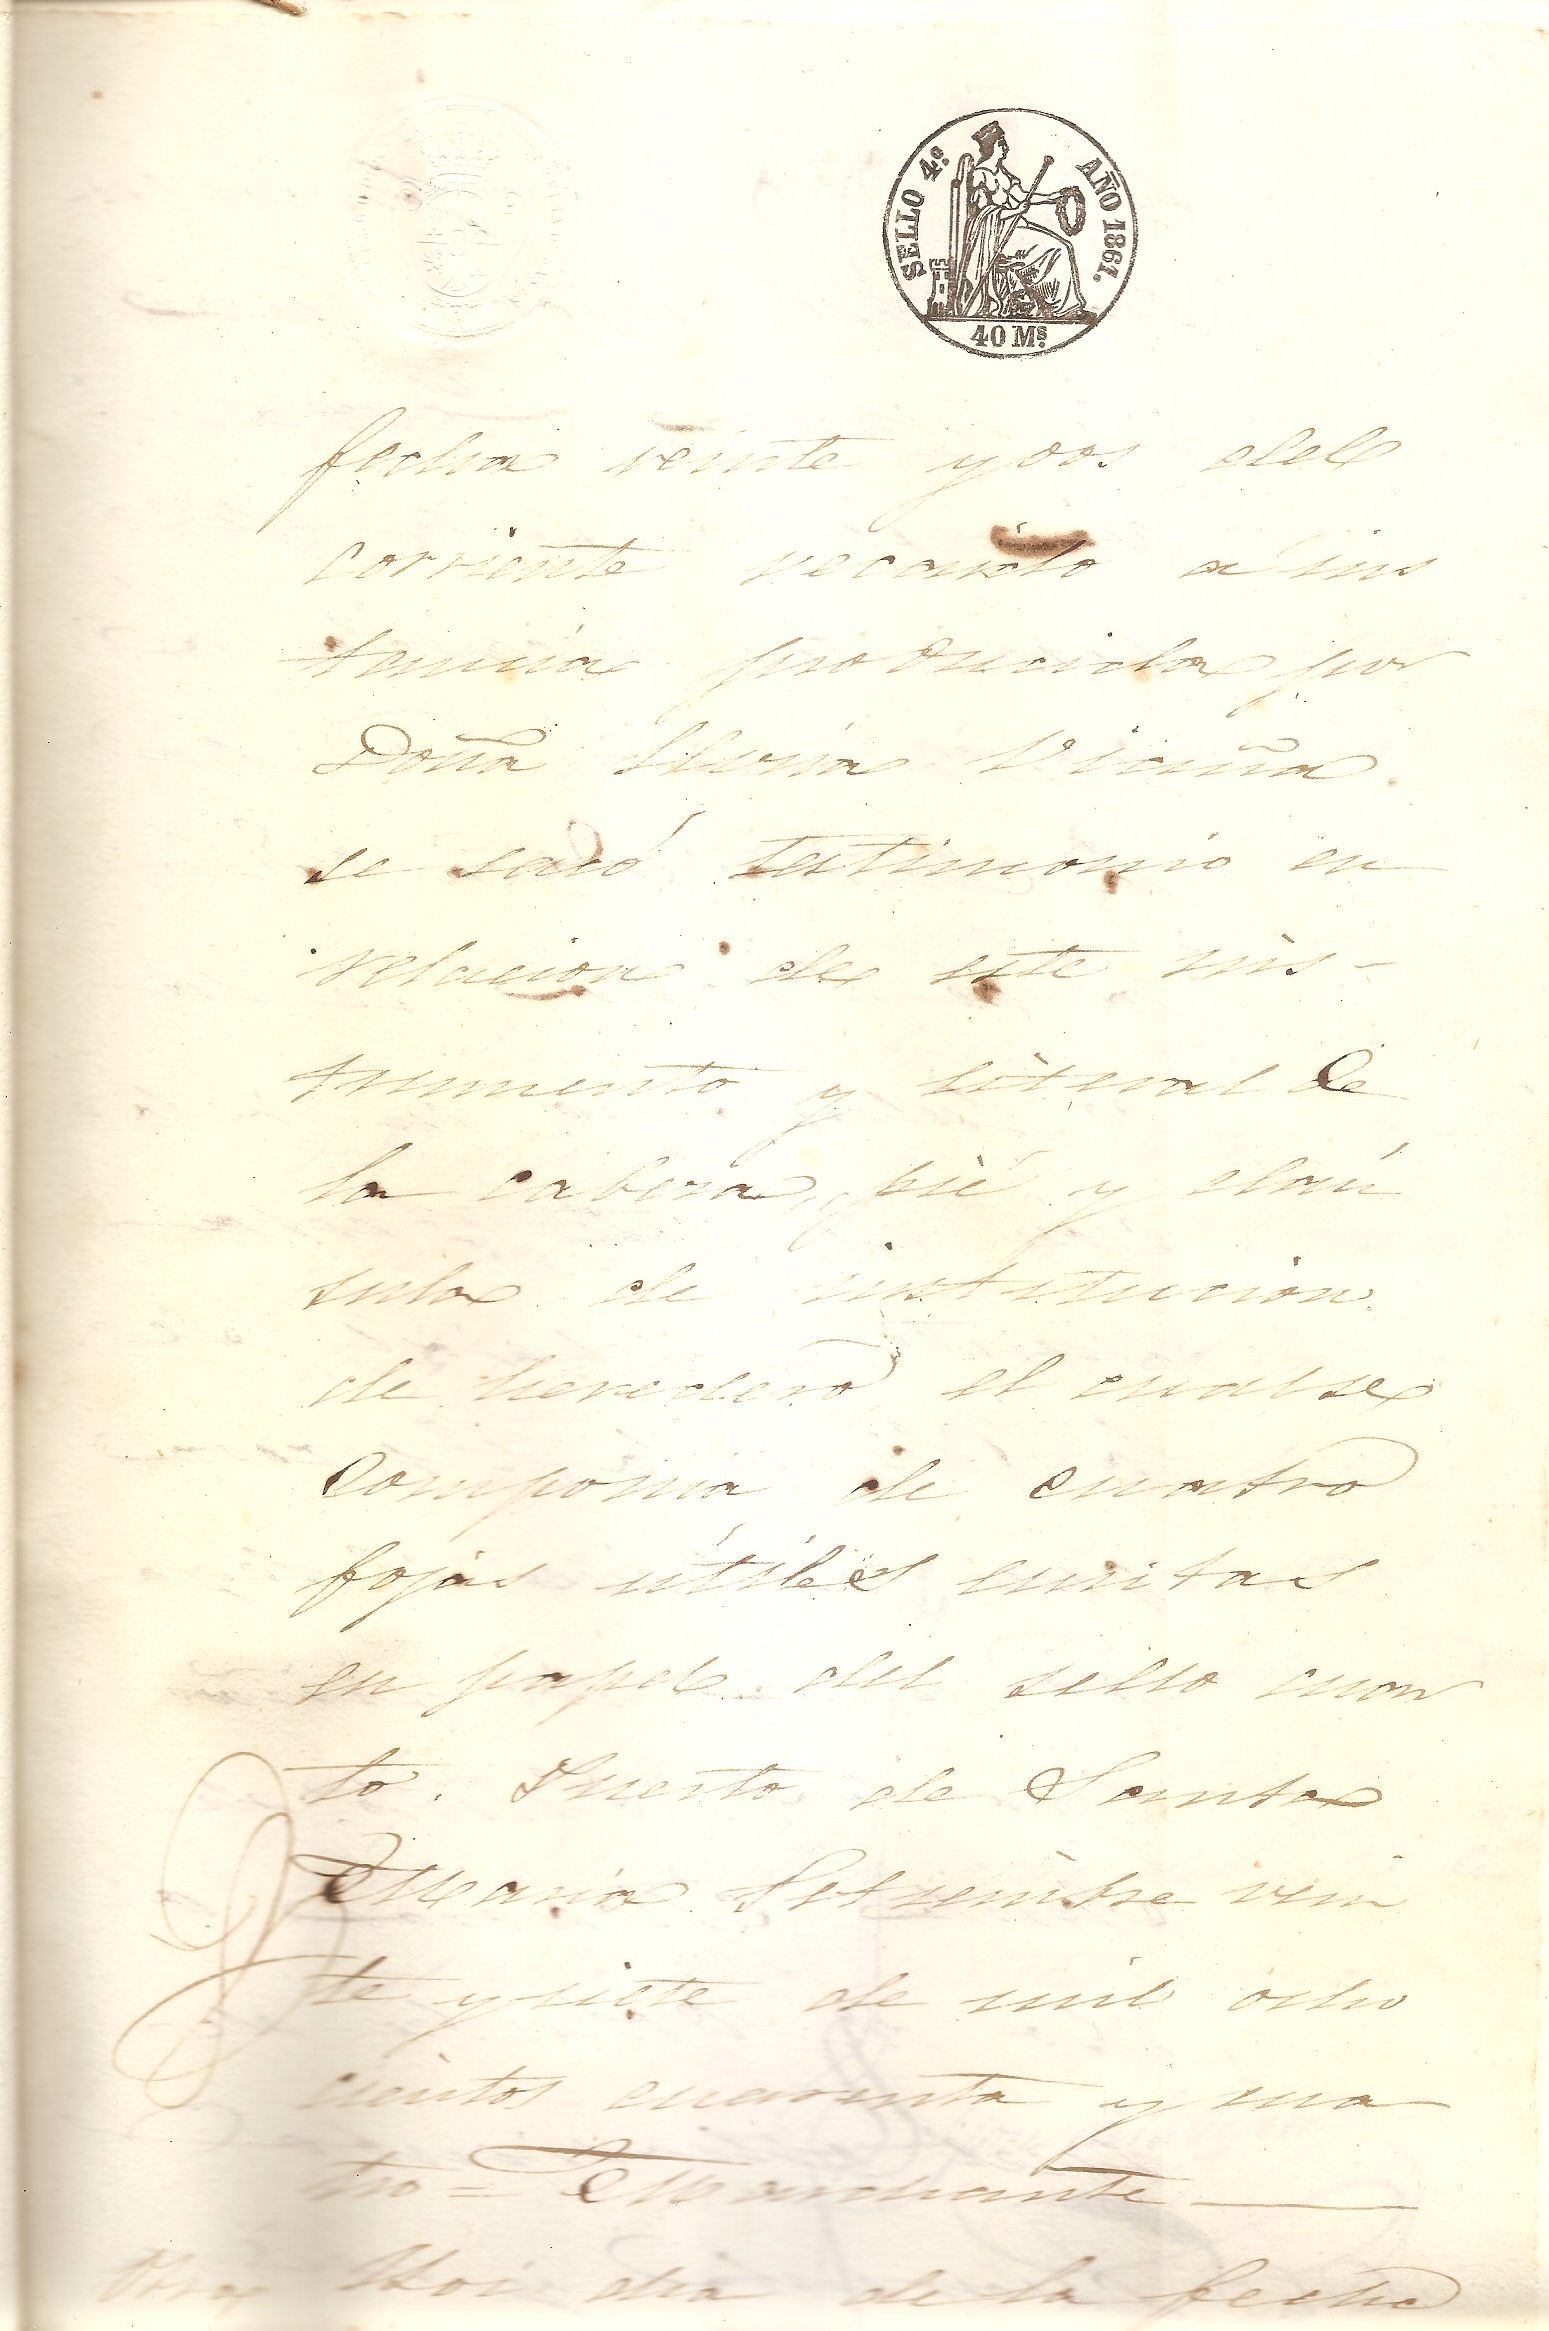 SELLO 4º AÑO 1861.
40 Ms.
fecha veinte y dos del
corriente recaido a ins
tancia producida por
Doña Maria Vicuña
se sacó testimonio en
relacion de este ins-
trumento y literal de
la cabeza, pié y claú
sula de institucion
de heredero, el cual se
componia de cuatro
fojas útiles escritas
en papel del sello cuar
to. Puerto de Santa
Maria Setiembre vein
te y siete de mil ocho
cientos cuarenta y cua
tro = Marchante
Otra Hoi dia de la fecha